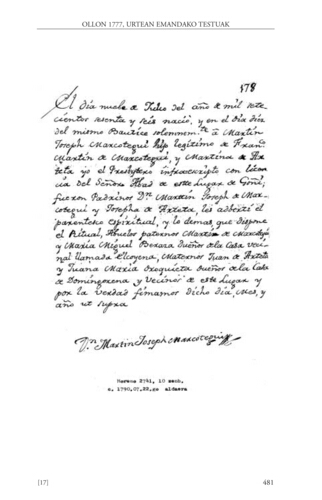 OLLON 1777, URTEAN EMANDAKO TESTUAK
178
El dia nuebe de Julio del año de mil sete-
cientos sesenta y seis nació, y en el dia diez
del mismo Bautice solemnem.te à Martin
Joseph Marcotegui hijo legitimo de Fran.co
Martin de Marcotegui, y Martina de Ar-
teta yo el Presbytero infraescripto con licen
cia del Señor Abad de este Lugar de Goñi;
fueron Padrinos D.n Martin Joseph de Mar-
cotegui y Josepha de Arteta, les adverti el
parentesco espiritual, y lo demas que dispone
el Ritual, Abuelos paternos Martin de Marcotegui
y Maria Miguel dueños de la Casa Veci-
nal llamada Maternos Juan de Arteta
y Juana Maria dueños de la Casa
de y Vecinos de este Lugar y
por la verdad firmamos dicho dia, Mes, y
año ut supra
D.n Martin Joseph Marcotegui
Moreno 2741, 10 zenb.
e. 1790.07.22.ko aldaera
[17]
481